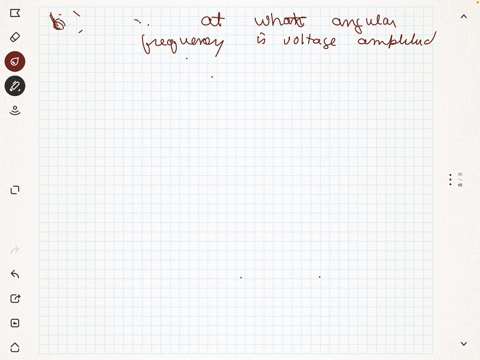 at what angular
frequency is voltage amplitud